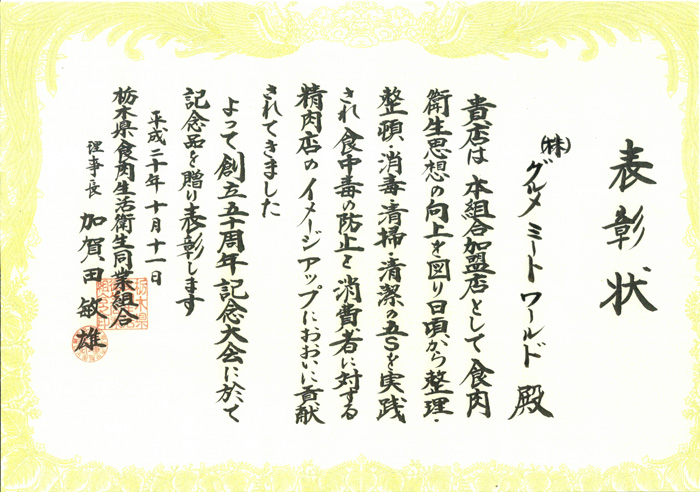 表彰状
㈱グルメミートワールド 殿
貴店は本組合加盟店として食肉
衛生思想の向上を図り日頃から整理・
整頓・消毒・清掃・清潔の五Sを実践
され食中毒の防止と消費者に対する
精肉店のイメージアップにおおいに貢献
されてきました
よって創立五十周年記念大会に於て
記念品を贈り表彰します
平成二十年十月十一日
栃木県食肉生活衛生同業組合
理事長 加賀田敏雄